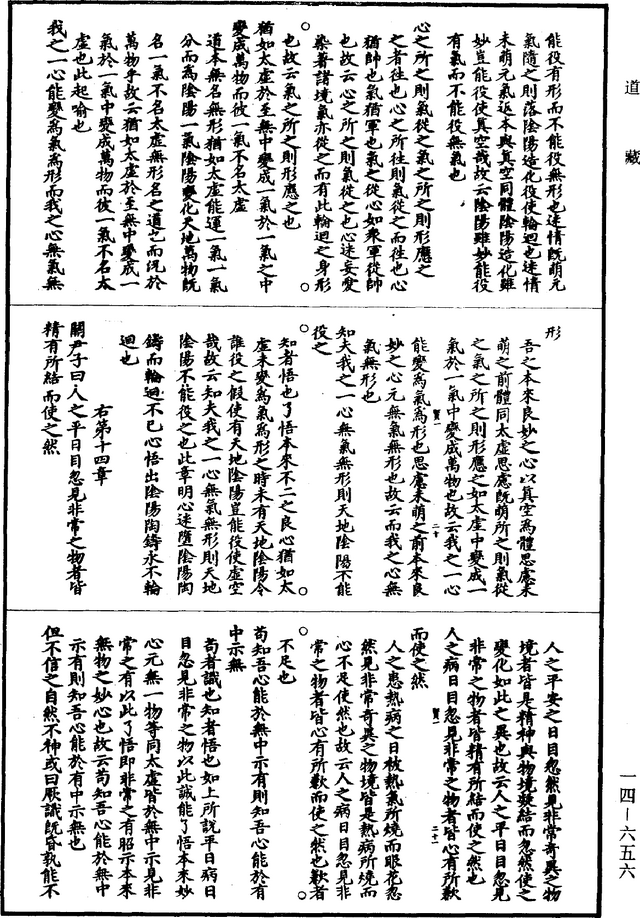 道藏
能役有形而不能役無形也迷情既萌元
氣隨之則落陰陽造化役使輪迴也迷情
未萌元氣返本與真空同體陰陽造化雖
妙豈能役使真空哉故云陰陽雖妙能役
有氣而不能役無氣也
心之所之則氣從之氣之所之則形應之
之者往也心之所往則氣從之而往也心
猶帥也氣猶軍也氣之從心如衆軍從帥
也故云心之所之則氣從之也心迷妄愛
染著諸境氣亦從之而有此輪迴之身形
也故云氣之所之則形應之也
猶如太虛於至無中變成一氣於一氣之中
變成萬物而彼一氣不名太虛
道本無名無形猶如太虛能運一氣一氣
分而為陰陽一氣陰陽變化天地萬物既
名一氣不名太虛無形名之道也而況於
萬物乎故云猶如太虛於至無中變成一
氣於一氣中變成萬物而彼一氣不名太
虛也此起喻也
我之一心能變為氣為形而我之心無氣無
形
吾之本來良妙之心以真空為體思慮未
萌之前體同太虛思慮既萌所之則氣從
之氣之所之則形應之如太虛中變成一
氣於一氣中變成萬物也故云我之一心
能變為氣為形也思慮未萌之前本來良
妙之心元無氣無形也故云而我之心無
氣無形也
知夫我之一心無氣無形則天地陰陽不能
役之
知者悟也了悟本來不二之良心猶如太
虛未變為氣為形之時未有天地陰陽令
誰役之假使有天地陰陽豈能役使虛空
哉故云知夫我之一心無氣無形則天地
陰陽不能役之也此章明心迷墮陰陽陶
鑄而輪迴不已心悟出陰陽陶鑄永不輪
迴也
右第十四章
關尹子曰人之平日目忽見非常之物者皆
精有所結而使之然
人之平安之日目忽然見非常奇異之物
境者皆是精神與物境凝結而忽然使之
變化如此之異也故云人之平日目忽見
非常之物者皆精有所結而使之然也
人之病日目忽見非常之物者皆心有所歉
而使之然
人之患熱病之日被熱氣所燒而眼花忽
然見非常奇異之物境皆是熱病所燒而
心不足使然也故云人之病日目忽見非
常之物者皆心有所歉而使之然也歉者
不足也
苟知吾心能於無中示有則知吾心能於有
中示無
苟者誠也知者悟也如上所說平日病日
目忽見非常之物以此誠能了悟本來妙
心元無一物等同太虛皆於無中示見非
常之有以此了悟即非常之有昭示本來
無物之妙心也故云苟知吾心能於無中
示有則知吾心能於有中示無也
但不信之自然不神或曰厥識既昏孰能不
一四－六五六